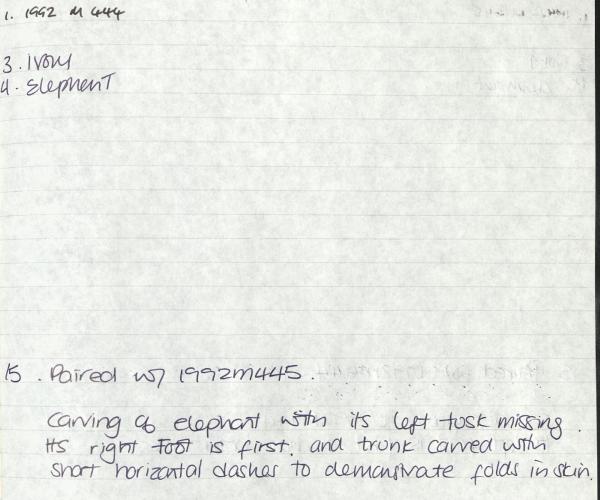 1. 1992 M 444
3. Ivory
4. Elephant
15. Paired w/ 1992M445.
Carving of elephant with its left tusk missing.
Its right foot is first, and trunk carved with
short horizontal dashes to demonstrate folds in skin.